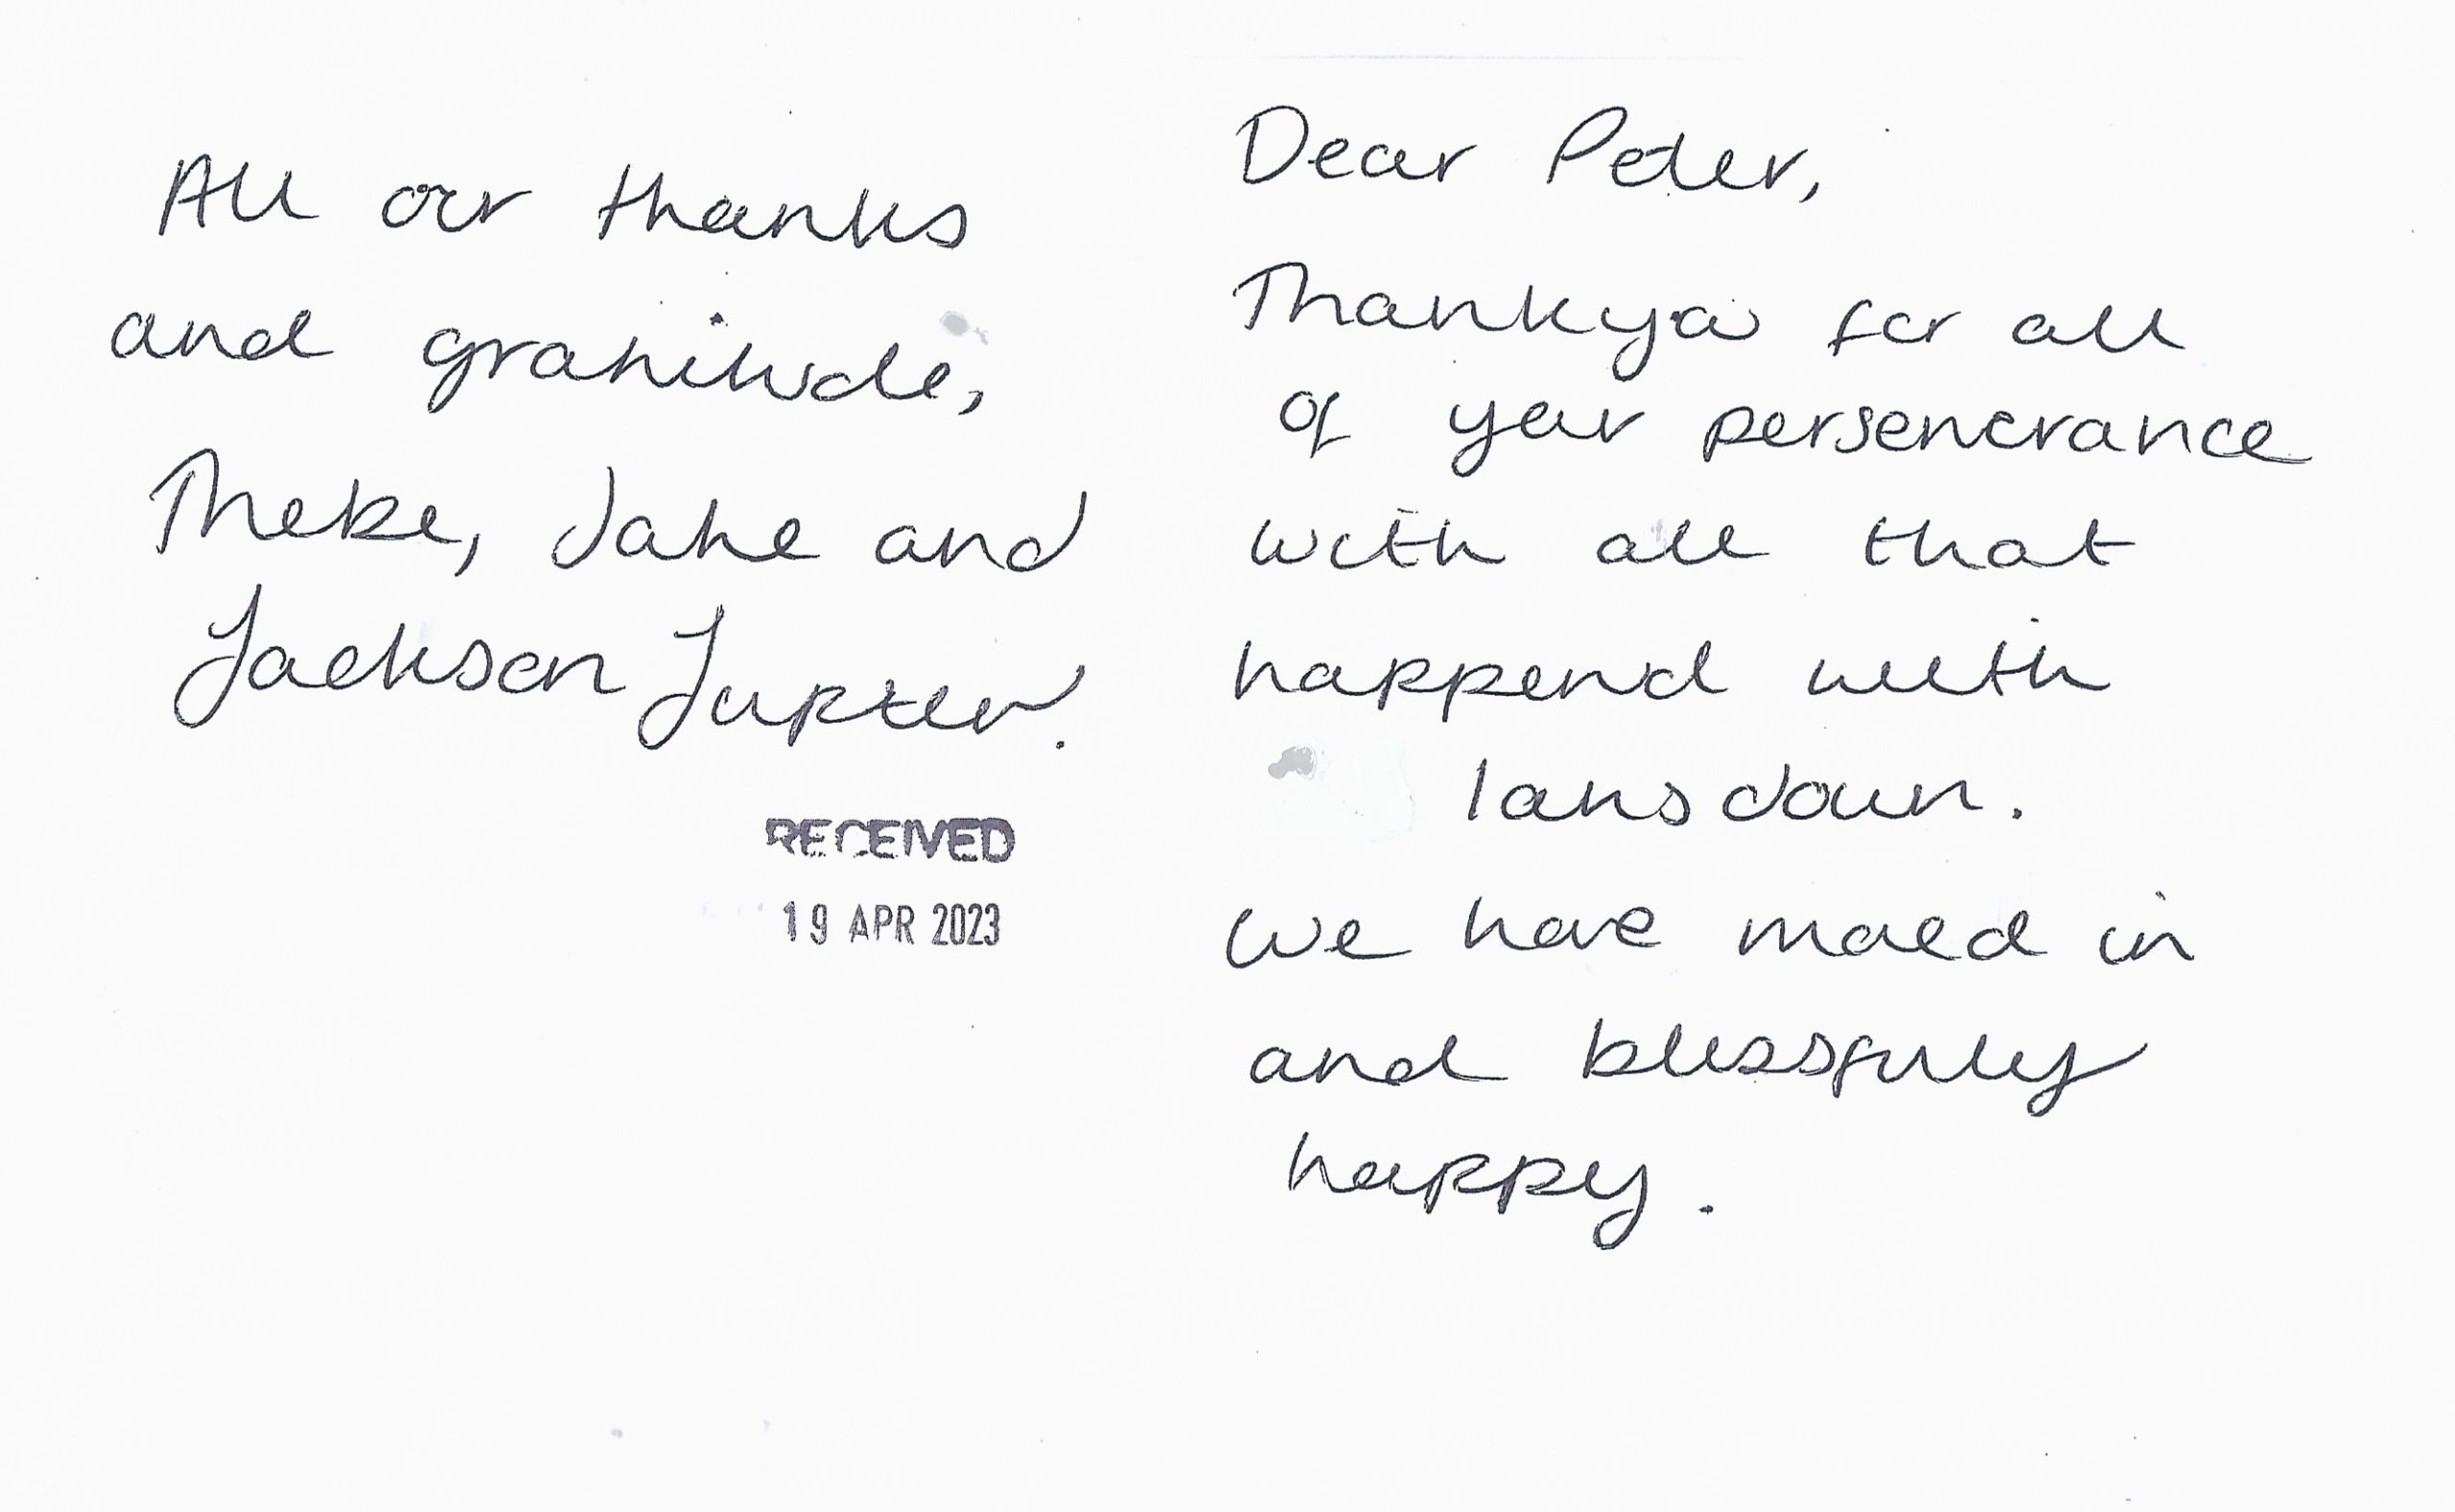 Dear Peter,
Thankyou for all
of your perserverance
with all that
happend with
lansdown.
We have moved in
and blissfully
happy.
All our thanks
and gratitude,
Jake and
Jackson Jupiter.
RECEIVED
19 APR 2023